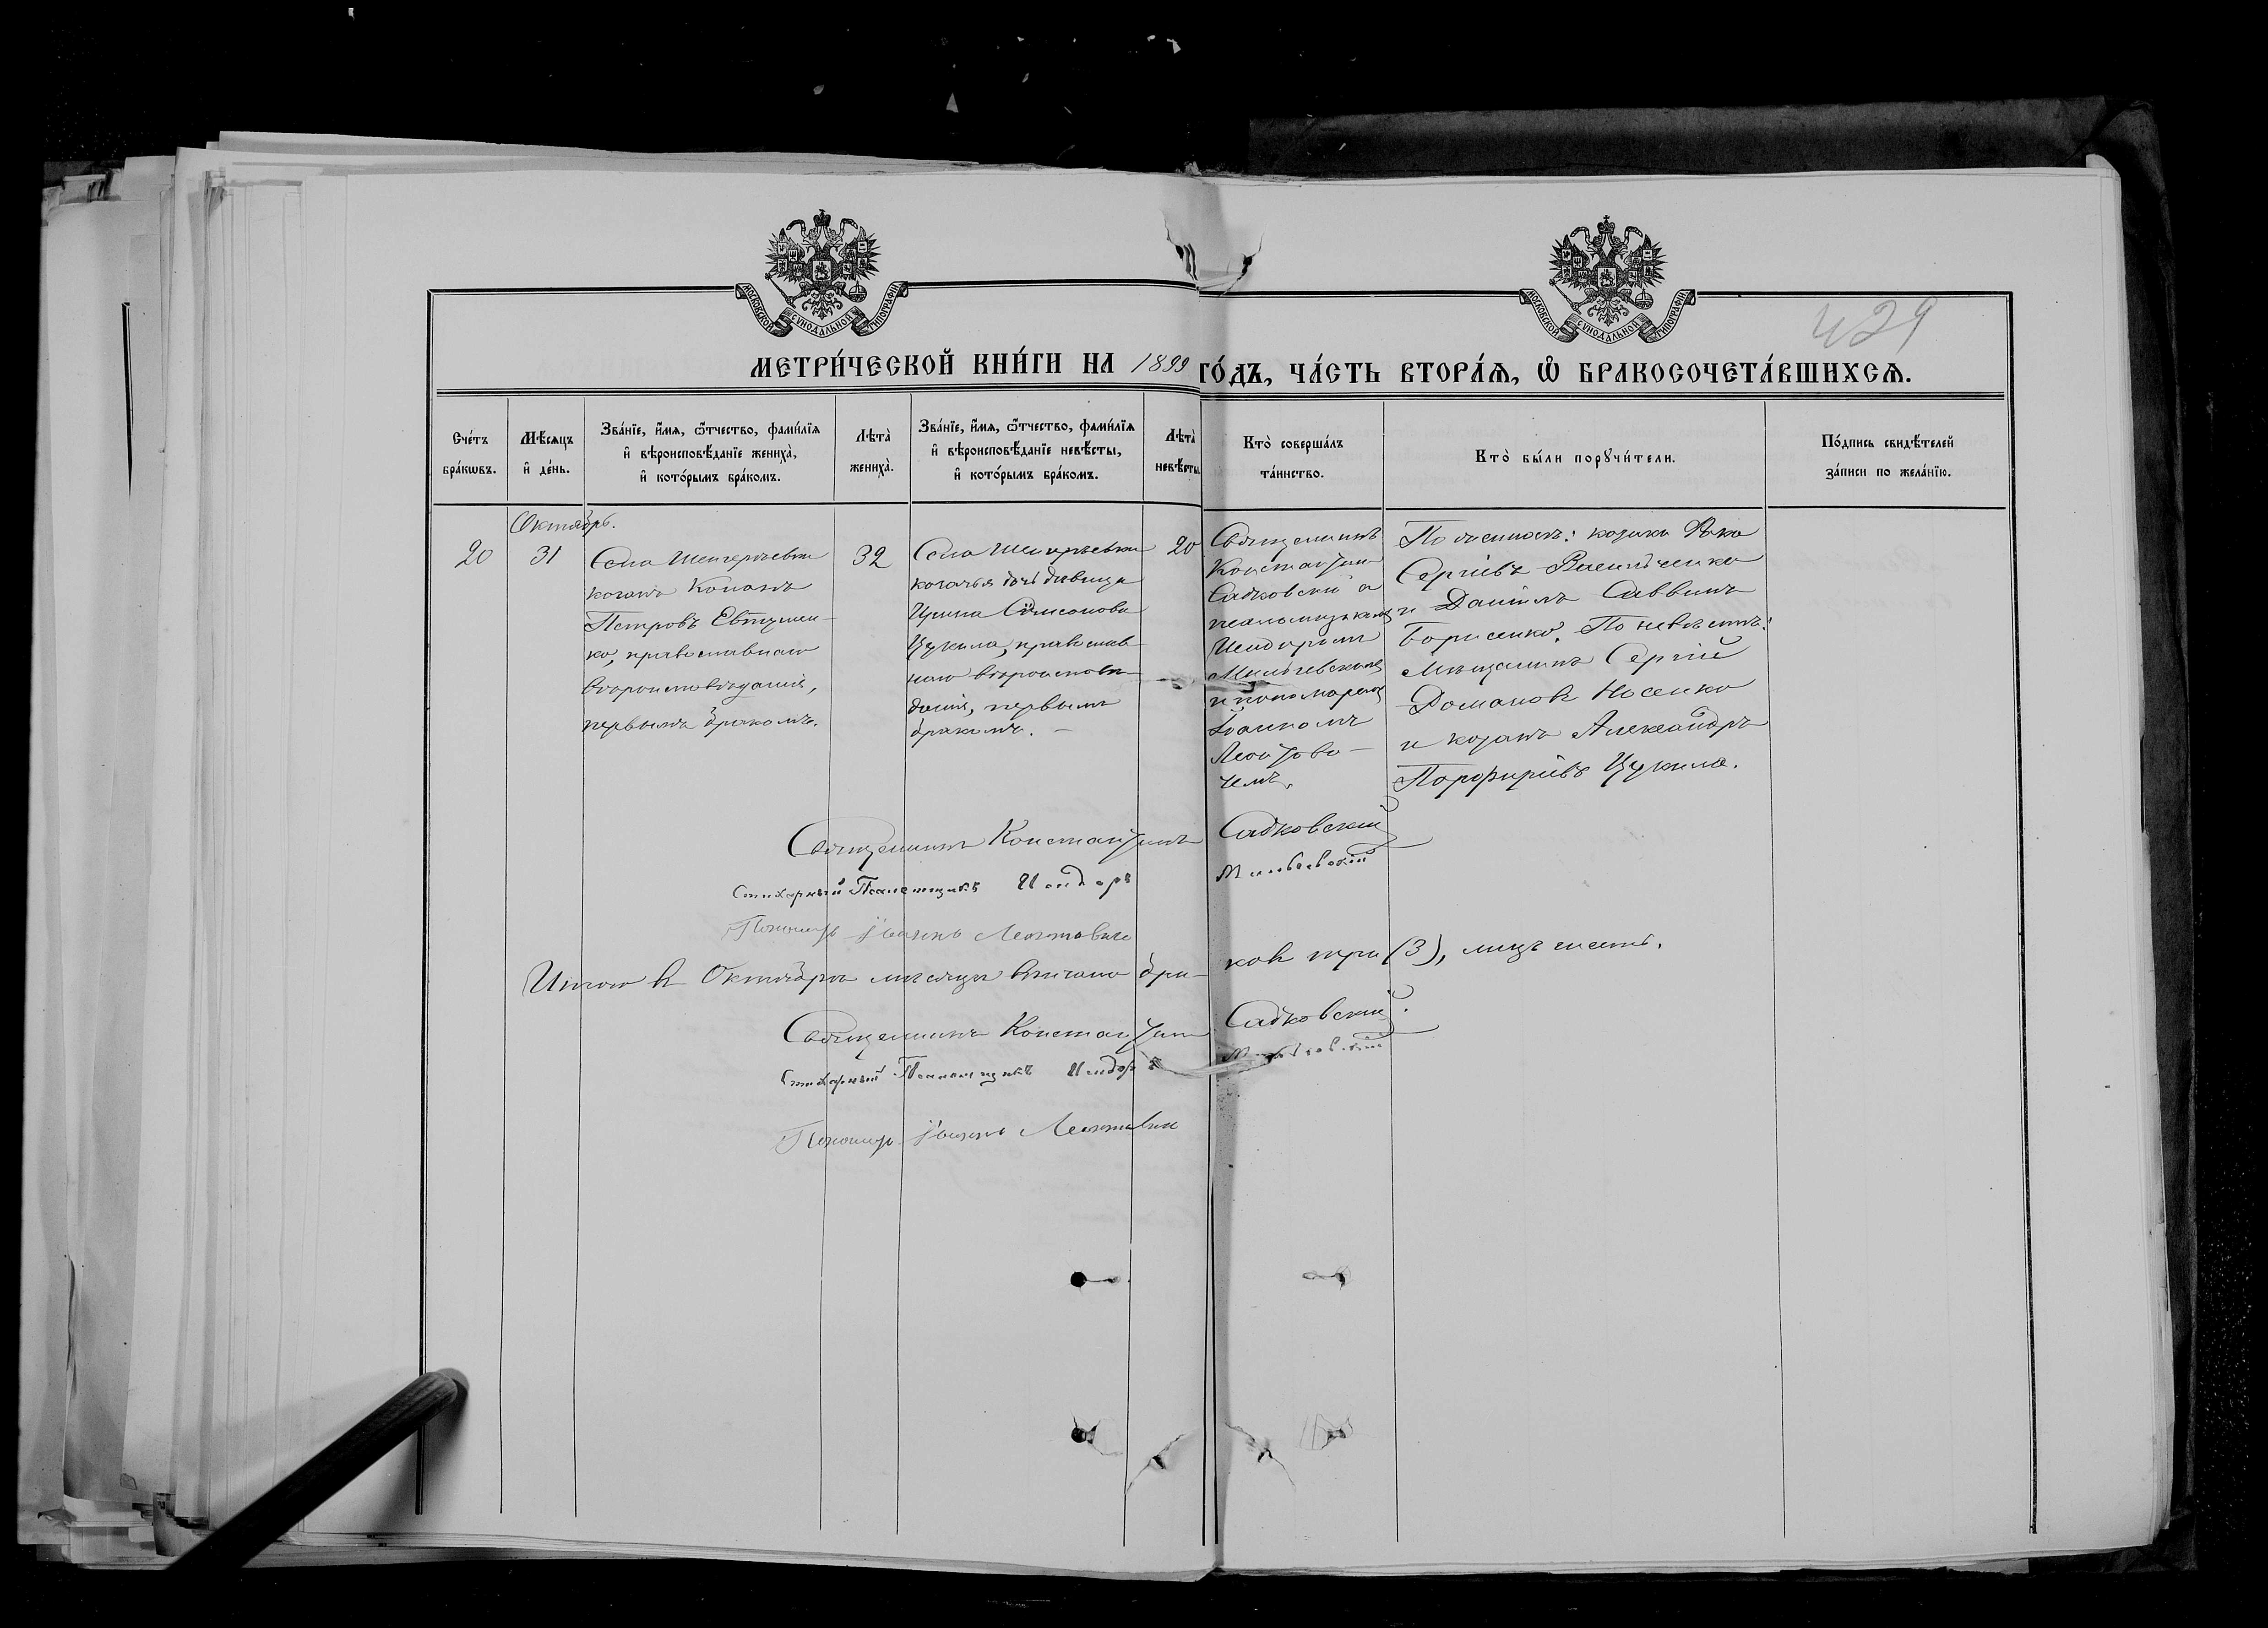 МОСКОВСКОЙ СѴНОДАЛЬНОЙ ТИПОГРАФІИ
МОСКОВСКОЙ СѴНОДАЛЬНОЙ ТИПОГРАФІИ
429
МЕТРИ́ЧЕСКОЙ КНИ́ГИ НА 1899 ГО́ДЪ, ЧА́СТЬ ВТОРА́Я, Ѡ҆ БРАКОСОЧЕТА́ВШИХСЯ.
Сче́тъ
бра́кѡвъ.
Мѣ́сяцъ
и҆ де́нь.
Зва́нїе, и҆́мя, ѻ҆́тчество, фами́лїя
и҆ вѣроисповѣ́данїе жениха̀,
и҆ кото́рымъ бра́комъ.
Лѣта̀
жениха̀.
Зва́нїе, и҆́мя, ѻ҆́тчество, фами́лїя
и҆ вѣроисповѣ́данїе невѣ́сты,
и҆ кото́рымъ бра́комъ.
Лѣта̀
невѣ́сты.
Кто̀ соверша́лъ
та́инство.
Кто̀ бы́ли порꙋчи́тели.
По́дпись свидѣ́телей
за́писи по жела́нїю.
Октябрь.
20
31
Села
козакъ Кононъ
Петровъ Евтушен-
ко, православнаго
вѣроисповѣданія,
первымъ бракомъ.
32
Села
козачья дочь дѣвица
Ирина Самсонова
Цукила, православ-
наго вѣроисповѣ-
данія, первымъ
бракомъ. —
20
Священникъ
Константинъ
Садковскій съ
псаломщикомъ
Исидоромъ
и пономаремъ
Іоанномъ
Леонтови-
чемъ.
По женихѣ: козаки
Сергіевъ Васильченко
и Даніилъ Саввинъ
Борисенко. По невѣстѣ:
мѣщанинъ Сергій
Домановъ Носенко
и козакъ Александръ
Порфиріевъ Цукила.
Священникъ Константинъ Садковскій
Стихарный Псаломщикъ Исидоръ
Пономарь Іоаннъ Леонтовичъ
Итого въ Октябрѣ мѣсяцѣ вѣнчано бра-
ковъ три (3), лицъ шесть.
Священникъ Константинъ Садковскій.
Стихарный Псаломщикъ Исидоръ
Пономарь Іоаннъ Леонтовичъ